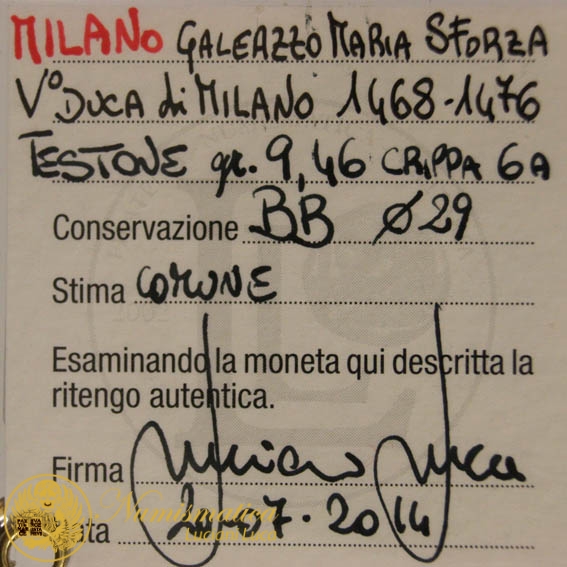 MILANO GALEAZZO MARIA SFORZA
V° DUCA di MILANO 1468-1476
TESTONE gr. 9,46 CRIPPA 6A
Conservazione BB Ø29
Stima COMUNE
Esaminando la moneta qui descritta la
ritengo autentica.
Firma Luciani Luca
Numismatica
Data 7-2014